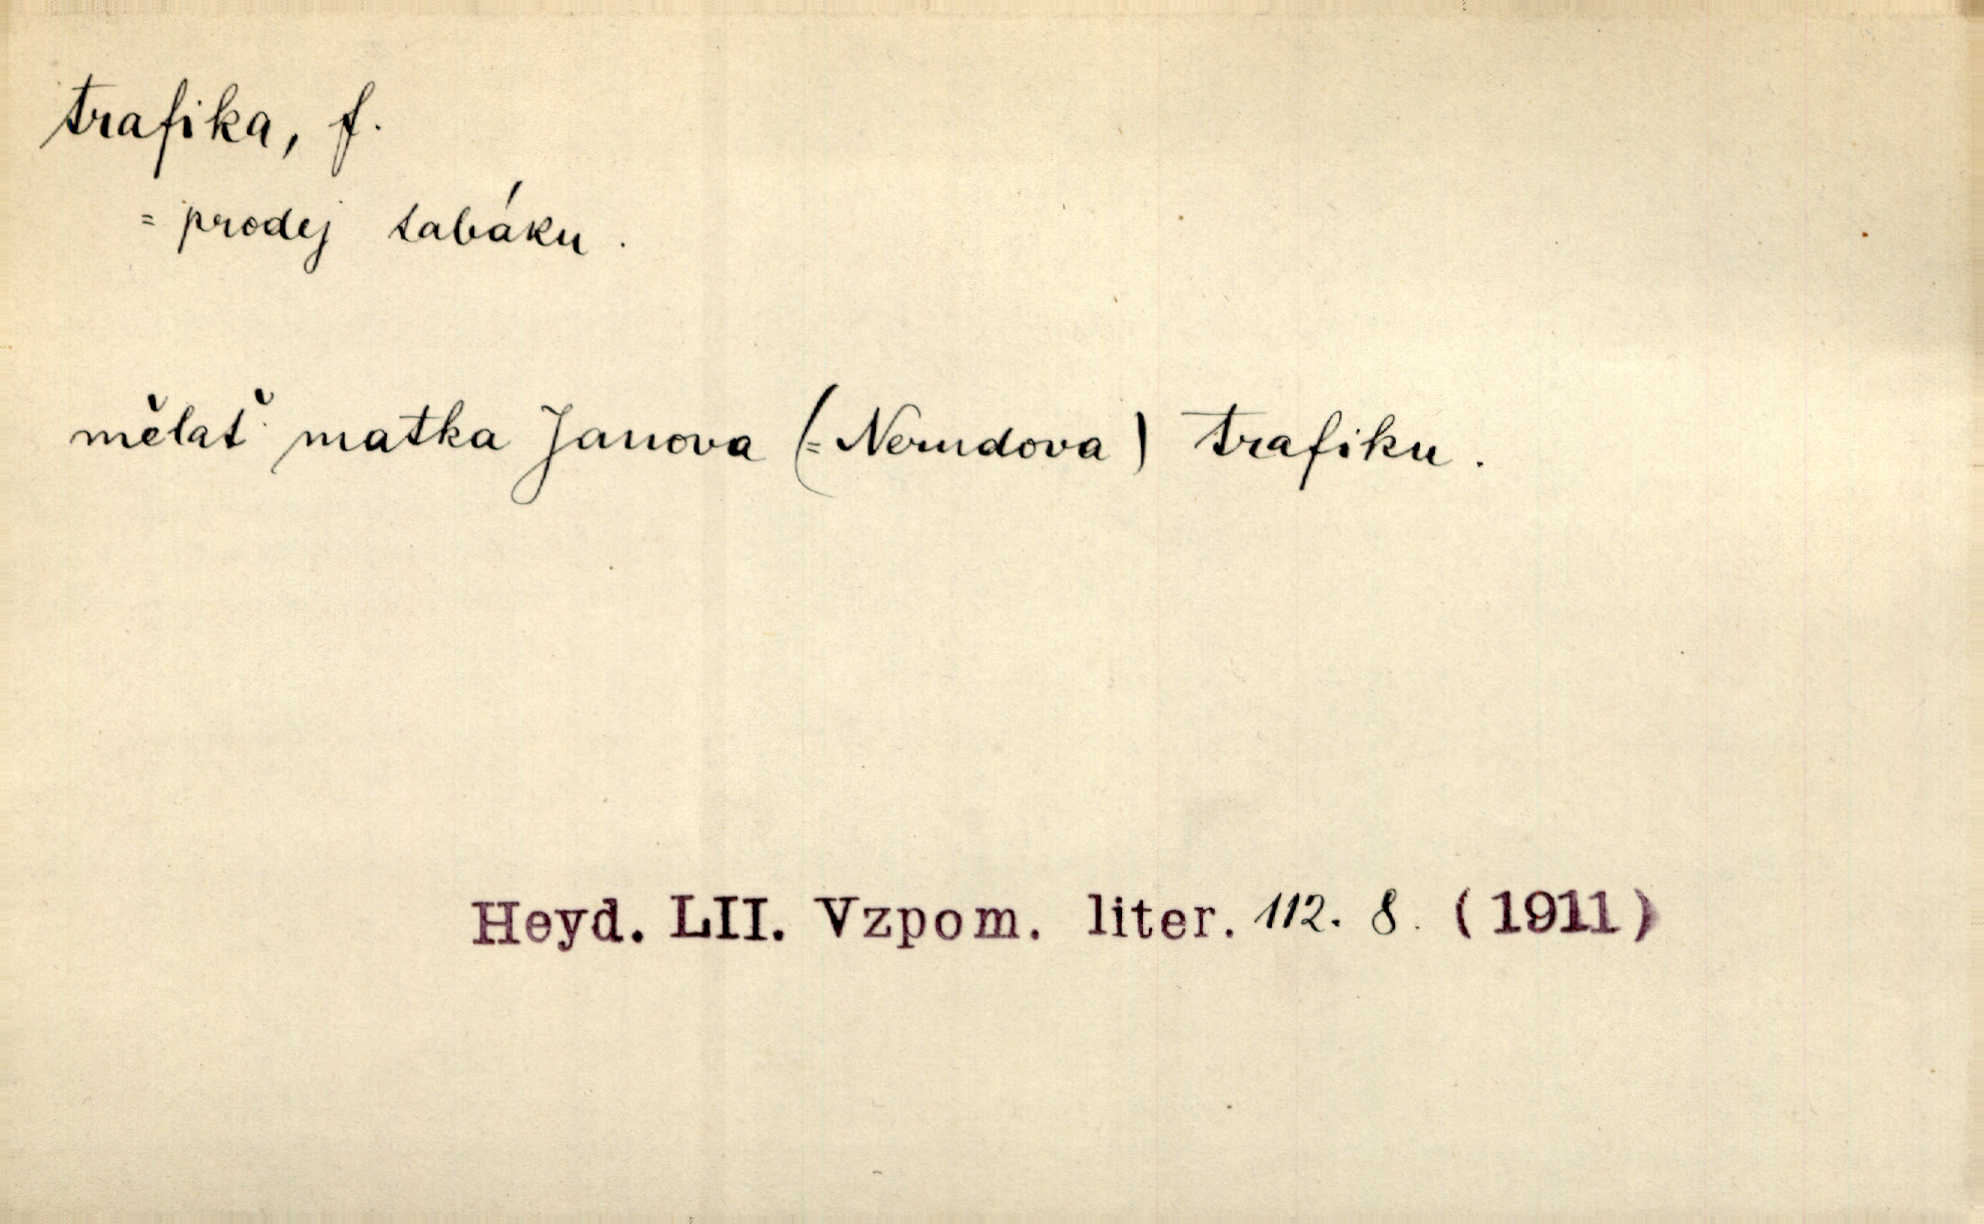 trafika, f.
= prodej tabáku.
mělať matka Janova (= Nerudova) trafiku.
Heyd. LII. Vzpom. liter. 112. 8. (1911)